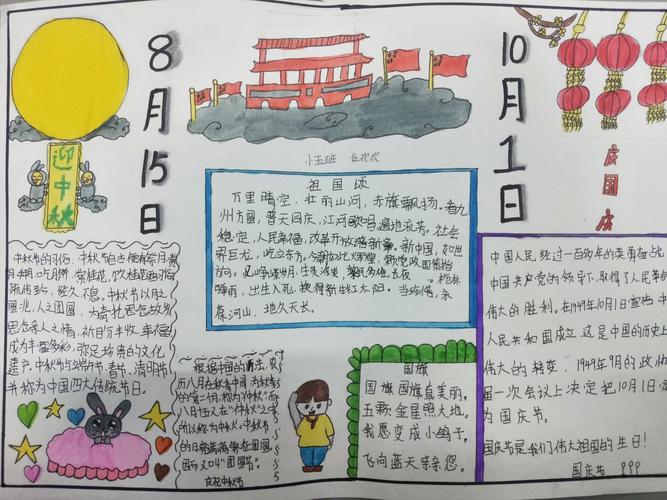 8月15日
10月1日
迎中秋
庆国庆
小五班
祖国颂
万里晴空，壮丽山河，赤旗飘扬。看九
州方圆，普天同庆，江河歌唱，遍地流芳。社会
稳定，人民幸福，改革开放谱新章。新中国，如世
界巨龙，屹立东方。
方向。
啸雨，出生入死，换得新生红太阳。当珍惜，永
葆河山，地久天长。
中秋节自古便有祭月、赏
月、吃月饼、赏桂花、饮桂花酒
流传至今，经久不息。中秋节以月之
圆兆人之团圆，为寄托思念故乡，
思念亲人之情，祈盼丰收、幸福，
成为丰富多彩、弥足珍贵的文化
遗产。中秋节与端午节、春节、清明节
并称为中国四大传统节日。
根据中国的
历八月在秋季中间，为秋季
的第二个月，称为“仲秋”，而
八月十五又在“仲秋”之中，
所以称为“中秋”。中秋节
因而又叫“团圆节”。
庆祝中秋节
国旗
国旗国旗真美丽，
五颗金星照大地。
我愿变成小鸽子，
飞向蓝天亲亲您。
中国人民经过一百多年的英勇奋战
中国共产党的领导下，取得了人民革命
伟大的胜利。在1949年10月1日宣告中
人民共和国成立，这是中国的历史上
伟大的转变，1949年9月的政协
届一次会议上决定把10月1日
为国庆节。
国庆节是我们伟大祖国的生日！
国庆节